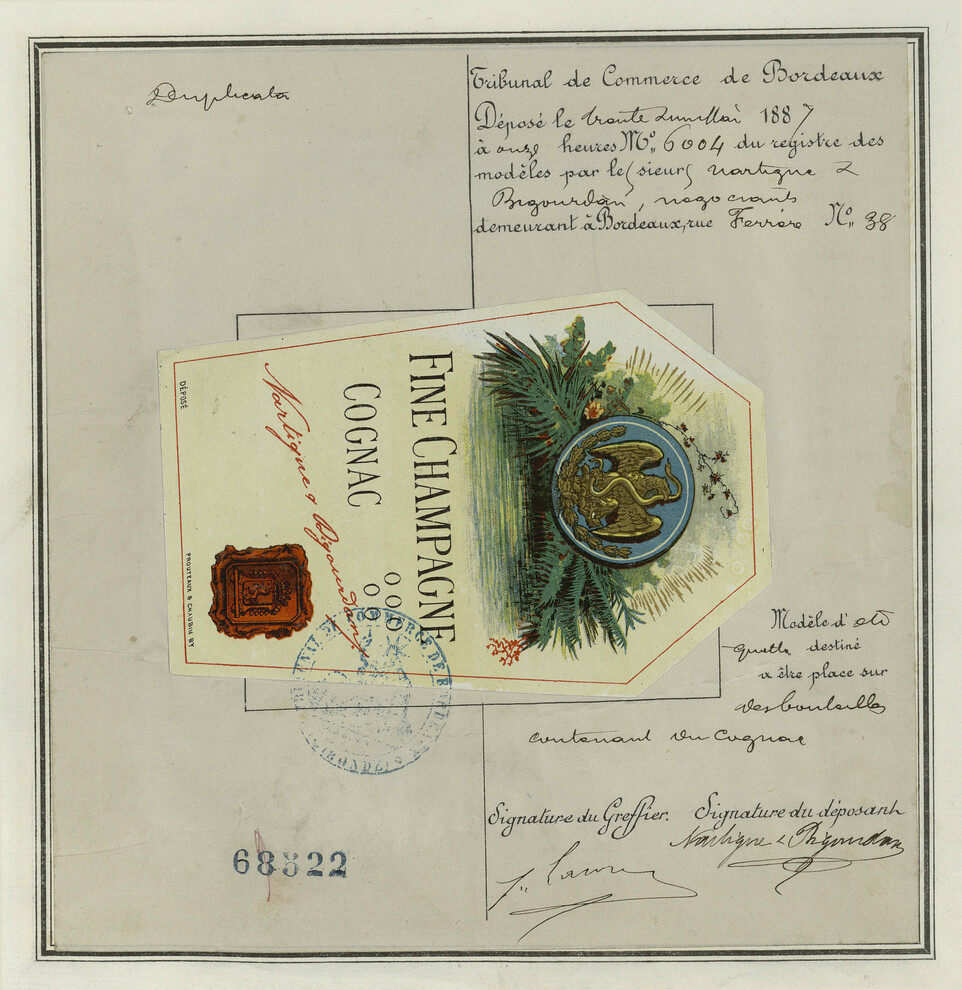 Duplicata
Tribunal de Commerce de Bordeaux
Déposé le trente un Mai 1887
à onze heures No. 6004 du registre des
modèles par les sieurs Nartigue &
Bigourdan, négociants
demeurant à Bordeaux, rue Ferrère No. 38
FINE CHAMPAGNE
COGNAC
000
000
Nartigue & Bigourdan
DÉPOSÉ
PROUTEAUX & CHAUBIN BY
TRIBUNAL DE COMMERCE DE BORDEAUX
GIRONDE
Modèle d'éti
quette destiné
a être place sur
des bouteilles
contenant du Cognac
Signature du Greffier. Signature du déposant
Nartigue & Bigourdan
68822